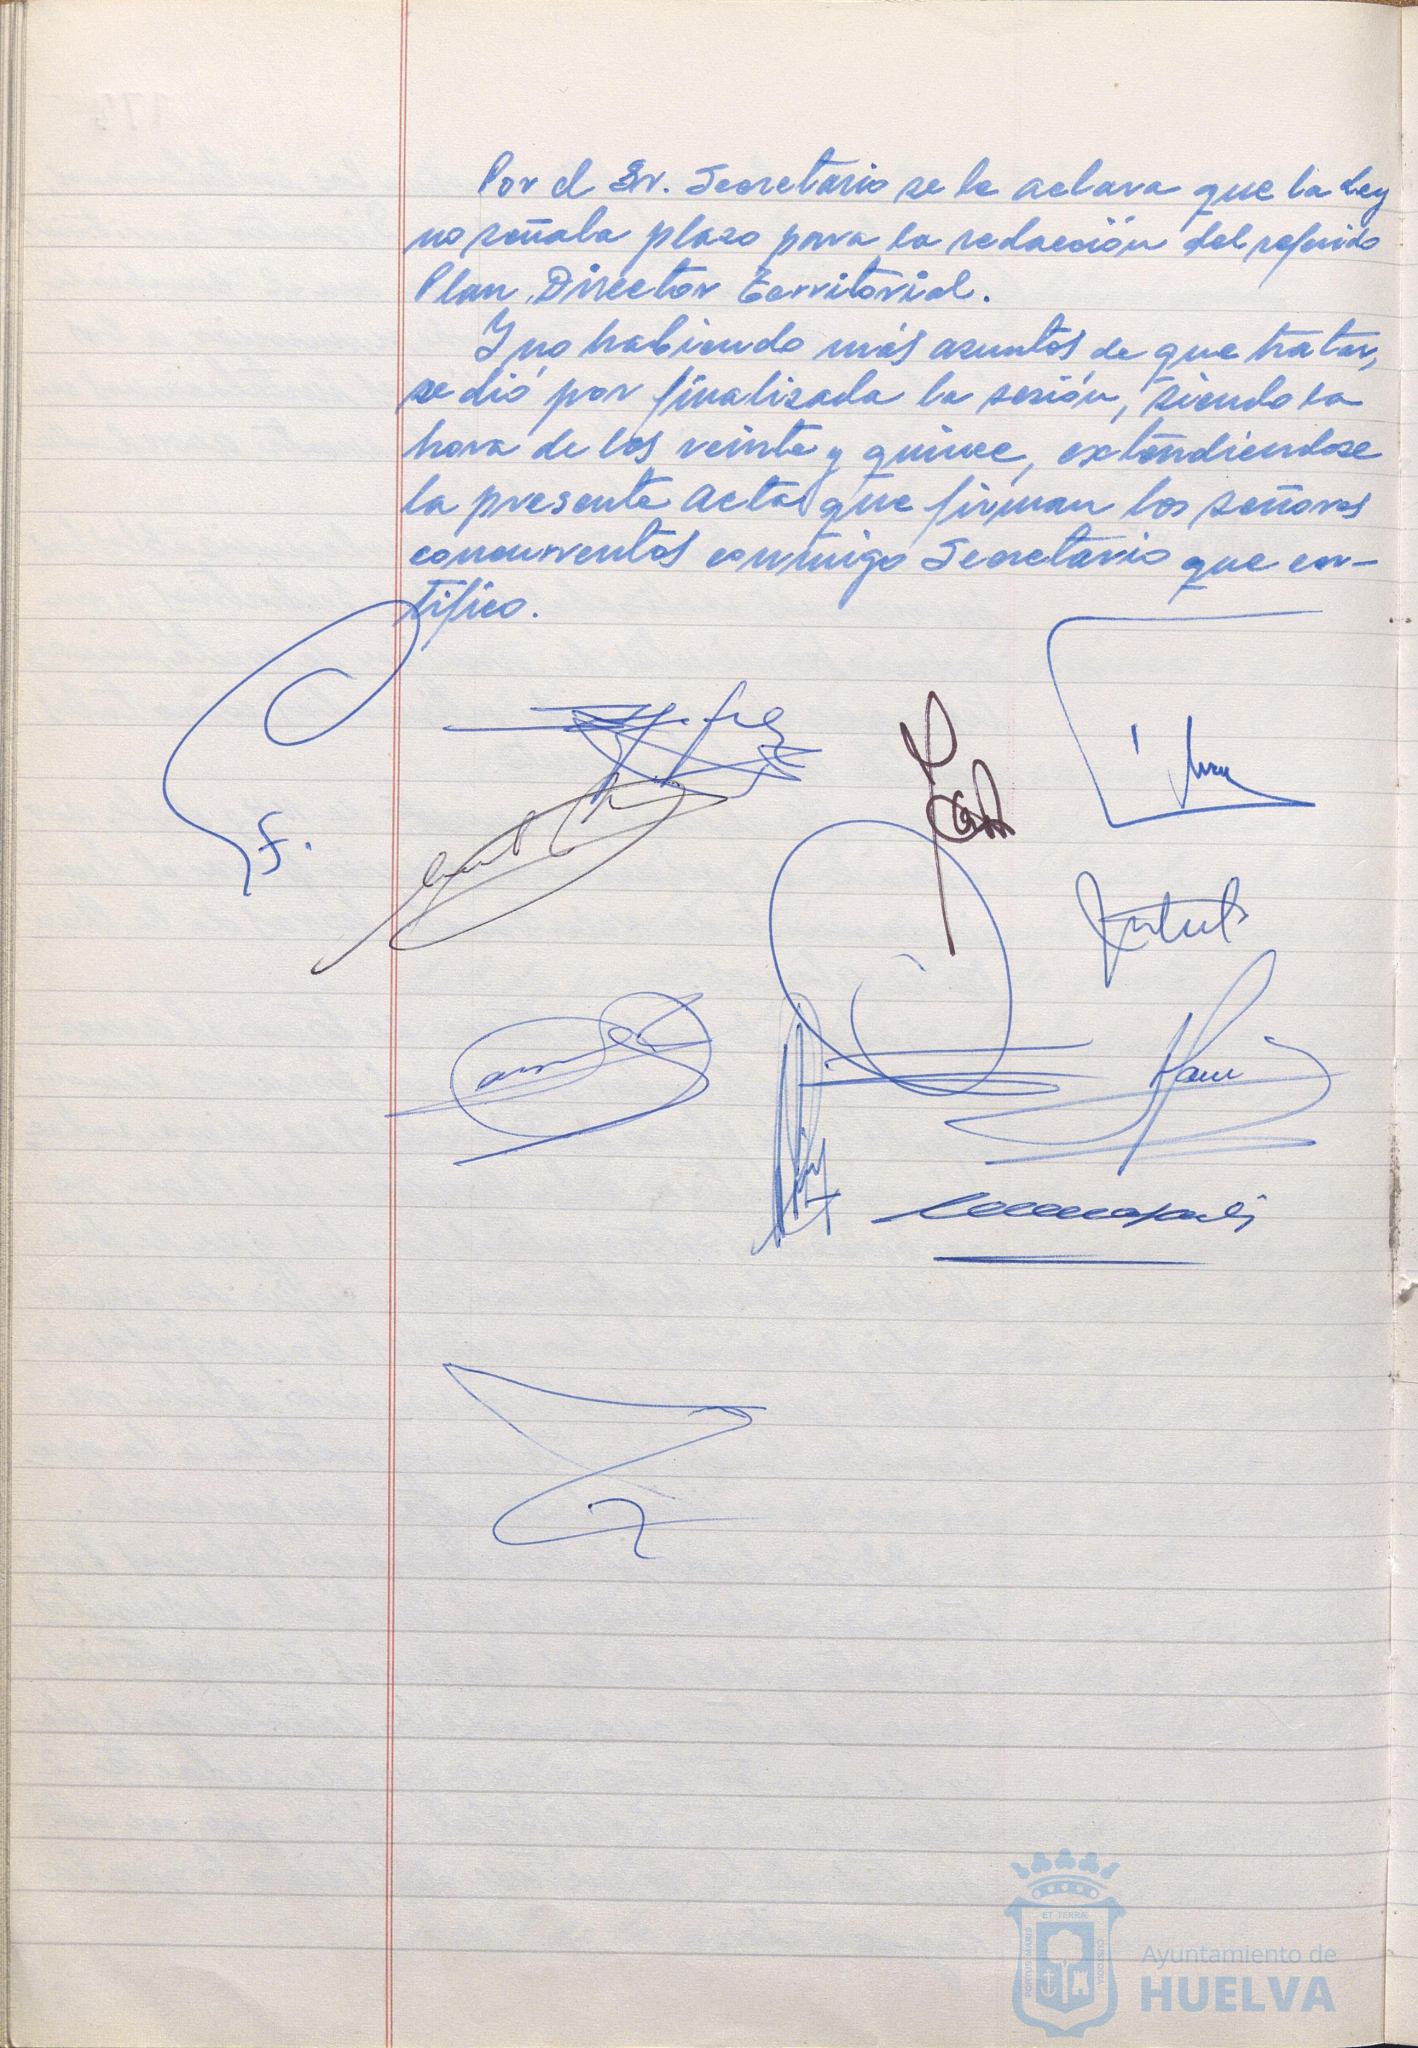 Por el Sr. Secretario se le aclara que la Ley
no señala plazo para la redacción del referido
Plan Director Territorial.
Y no habiendo más asuntos de que tratar,
se dió por finalizada la sesión, siendo la
hora de las veinte y quince, extendiéndose
la presente Acta que firman los señores
concurrentes conmigo Secretario que cer-
tifico.
F.
ET TERRÆ
PORTUS MARIS
CUSTODIA
Ayuntamiento de
HUELVA